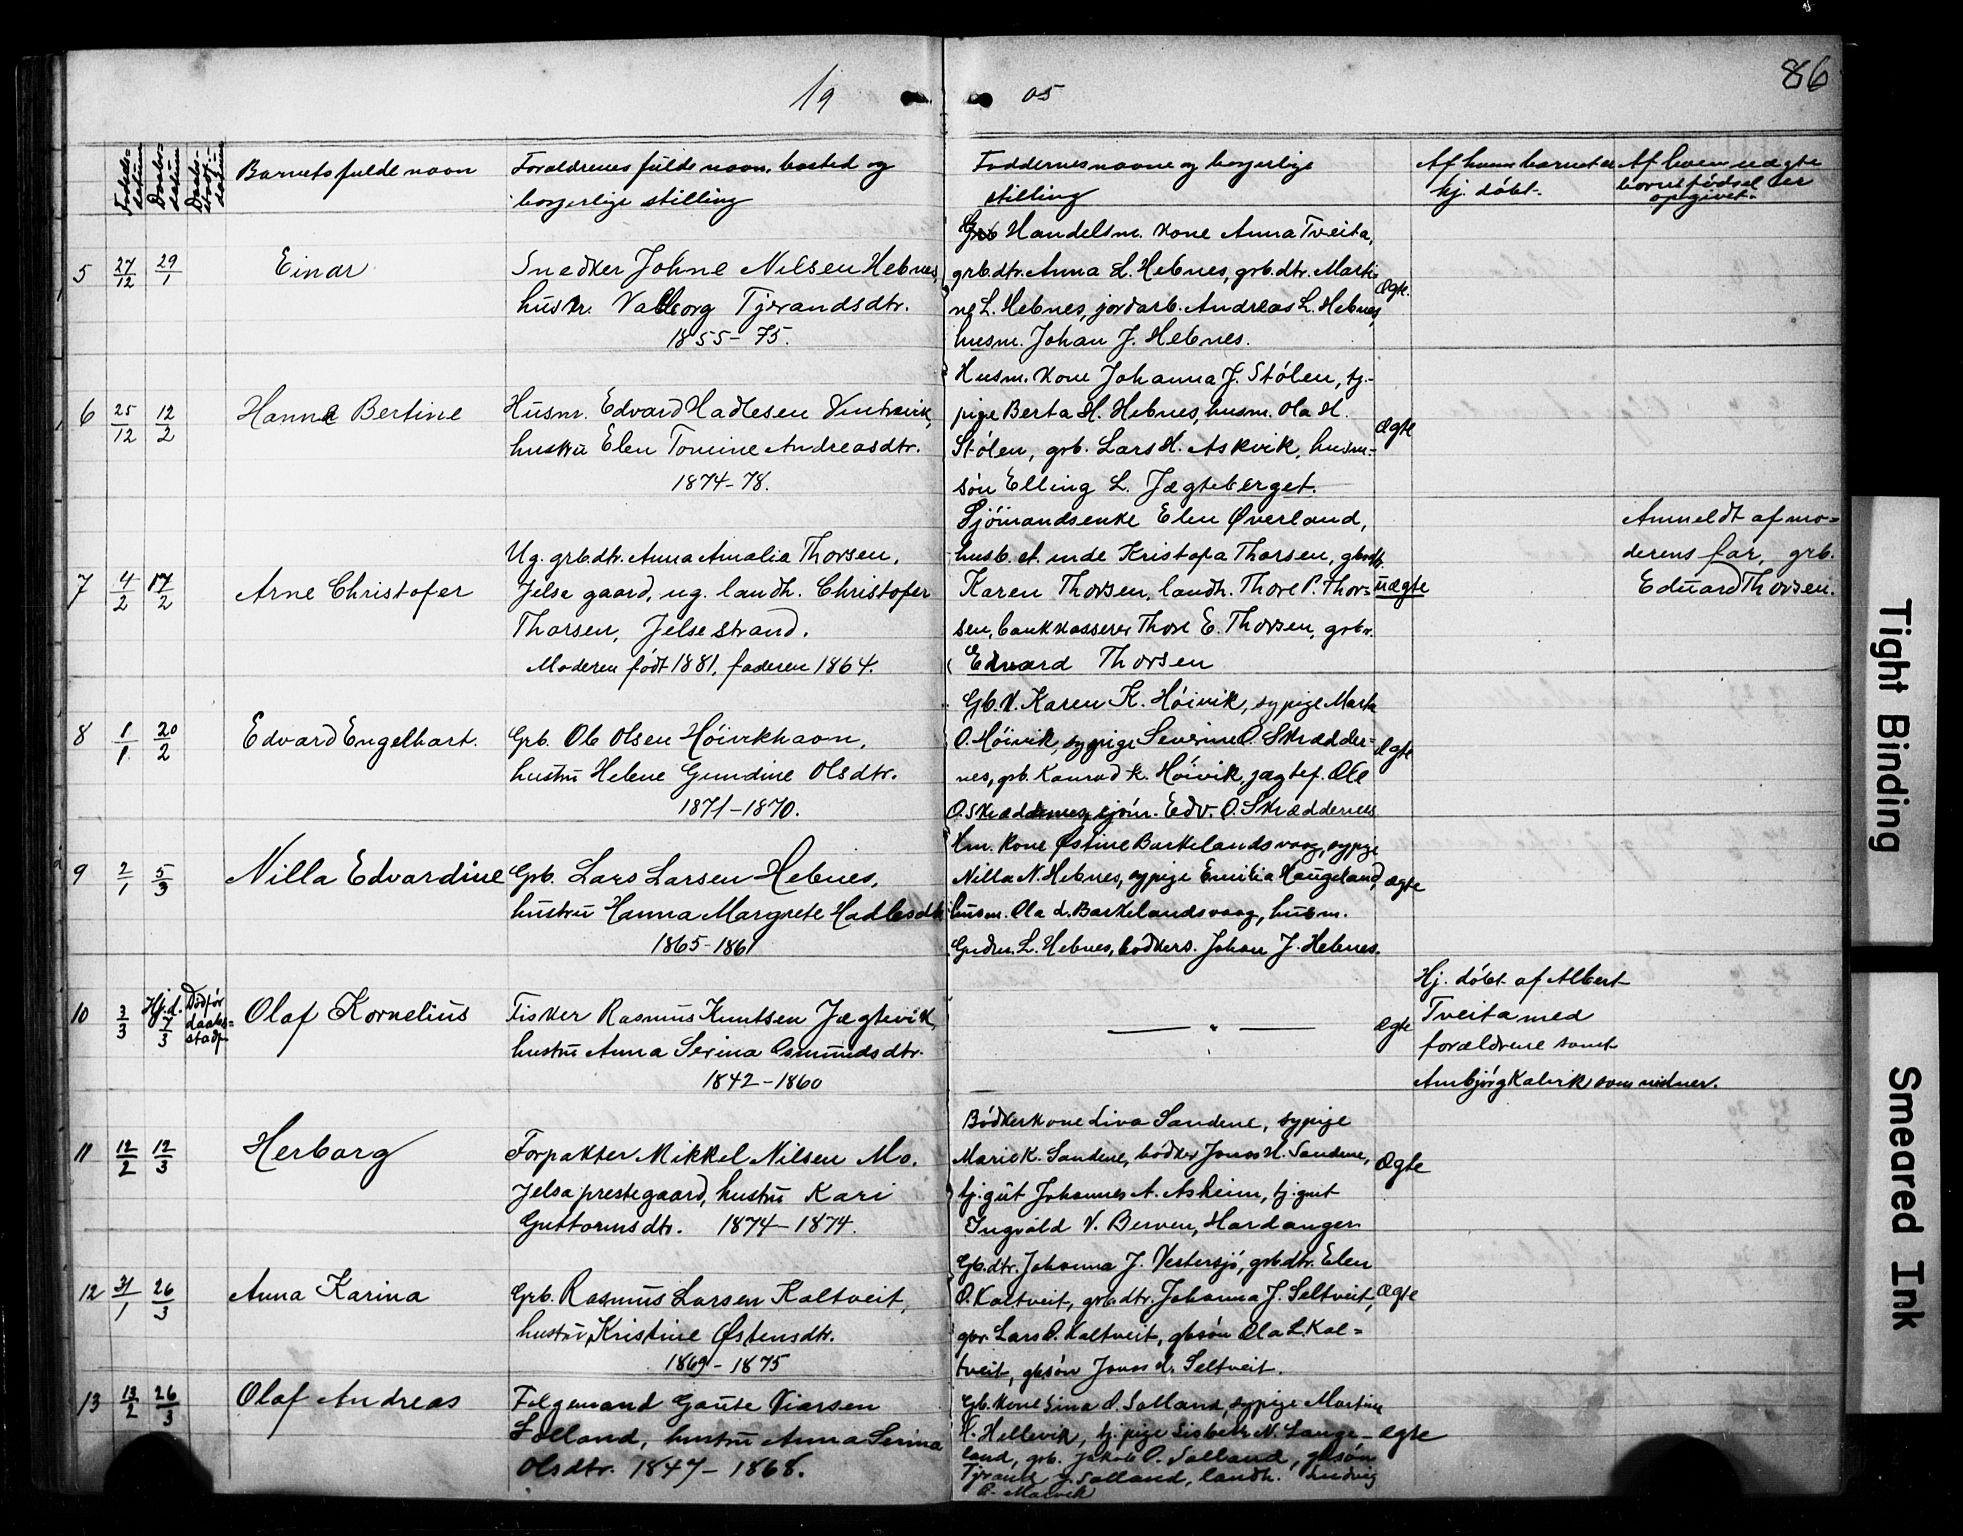 19 05
86
Fødsels-datum
Daabs-datum
Daabs-sted
Barnets fulde navn
Forældrenes fulde navn, bosted og
borgerlige stilling
Faddernes navne og borgerlige
stilling
Af hvem barnet er
hj. døbt.
Af hvem uægte
barnefødsel er
opgivet.
5 27/12 29/1
Einar
Snedker Johne Nilsen Hebnes,
hustr. Valborg Tjerandsdtr.
1855-75.
Handelsm. kone Anna Tveita,
grb.dtr. Anna L. Hebnes, grb.dtr. Marti-
ne L. Hebnes, jordarb. Andreas L. Hebnes,
husm. Johan J. Hebnes.
ægte
6 25/12 12/2
Hanna Bertine
Husm. Edvard Hadlesen Vintravik,
hustru Elen Tomine Andreasdtr.
1874-78.
Husm. kone Johanna J. Stölen, tj.-
pige Berta H. Hebnes, husm. Ola H.
Stölen, grb. Lars H. Askvik, husm-
sön Elling L. Jægteberget.
ægte
7 4/2 17/2
Arne Christofer
Ug. grb.dtr. Anna Amalia Thorsen,
Jelse gaard, ug. landh. Christofer
Thorsen, Jelse strand.
Moderen født 1881, faderen 1864.
Sjömandsenke Elen Øverland,
Kristofa Thorsen,
Karen Thorsen, landh. Thore P. Thor-
sen, bankkasserer Thore E. Thorsen, grbr.
Edvard Thorsen
uægte
Anmeldt af mo-
derens far, grb.
Eduard Thorsen.
8 1/1 20/2
Edvard Engelhart.
Grb. Ole Olsen Höivikhavn,
hustru Helene Gundine Olsdtr.
1871-1870.
Gb.k. Karen K. Höivik, sypige Marta
O. Höivik, sypige Severine O. Skrædder-
nes, grb. Konrad K. Höivik, jægtef. Ole
O. Skræddernes, sjöm. Edv. O. Skræddernes
ægte
9 2/1 5/3
Nilla Edvardine
Grb. Lars Larsen Hebnes,
hustru Hanna Margrete Hadlesdtr.
1865-1861
Hm. kone Østine Barkelandsvaag, sypige
Nilla N. Hebnes, sypige Emilia Haugeland,
husm. Ola L. Barkelandsvaag, husm.
Gudm. L. Hebnes, bödkers. Johan J. Hebnes.
ægte
10 3/3 Hj.d. 7/3
Död för
daabs-
stadf.
Olaf Kornelius
Fisker Rasmus Knutsen Jægtevik,
hustru Anna Serina Osmundsdtr.
1842-1860
— " —
ægte
Hj. döbt af Albert
Tveita med
forældrene samt
Ambjörg Kalvik som vidner.
11 12/2 12/3
Herborg
Forpakter Mikkel Nilsen Mo.
Jelsa prestegaard, hustru Kari
Guttormsdtr. 1874-1874.
Bödkerkone Liva Sandene, sypige
Marie K. Sandene, bödker Jonas H. Sandene,
tj.gut Johannes A. Asheim, tj.gut
Ingvald V. Berven, Hardanger
ægte
12 31/1 26/3
Anna Karina
Grb. Rasmus Larsen Kaltveit,
hustru Kristine Østensdtr.
1869-1875
Gb.dtr. Johanna J. Vestersjö, grb.dtr. Elen
O. Kaltveit, grb.dtr. Johanna J. Seltveit,
gbr. Lars O. Kaltveit, gbsön Ola L. Kal-
tveit, gbsön Jonas H. Seltveit.
ægte
13 13/2 26/3
Olaf Andreas
Følgemand Gaute Viarsen
Solland, hustru Anna Serina
Olsdtr. 1847-1868.
Gb. kone Sina O. Solland, sypige Martine
H. Hellevik, tj.pige Lisbeth N. Lange-
land, grb. Jakob O. Solland, gbsön
Tjerand G. Solland, landh. Ludvig
ægte
Tight Binding
Smeared Ink